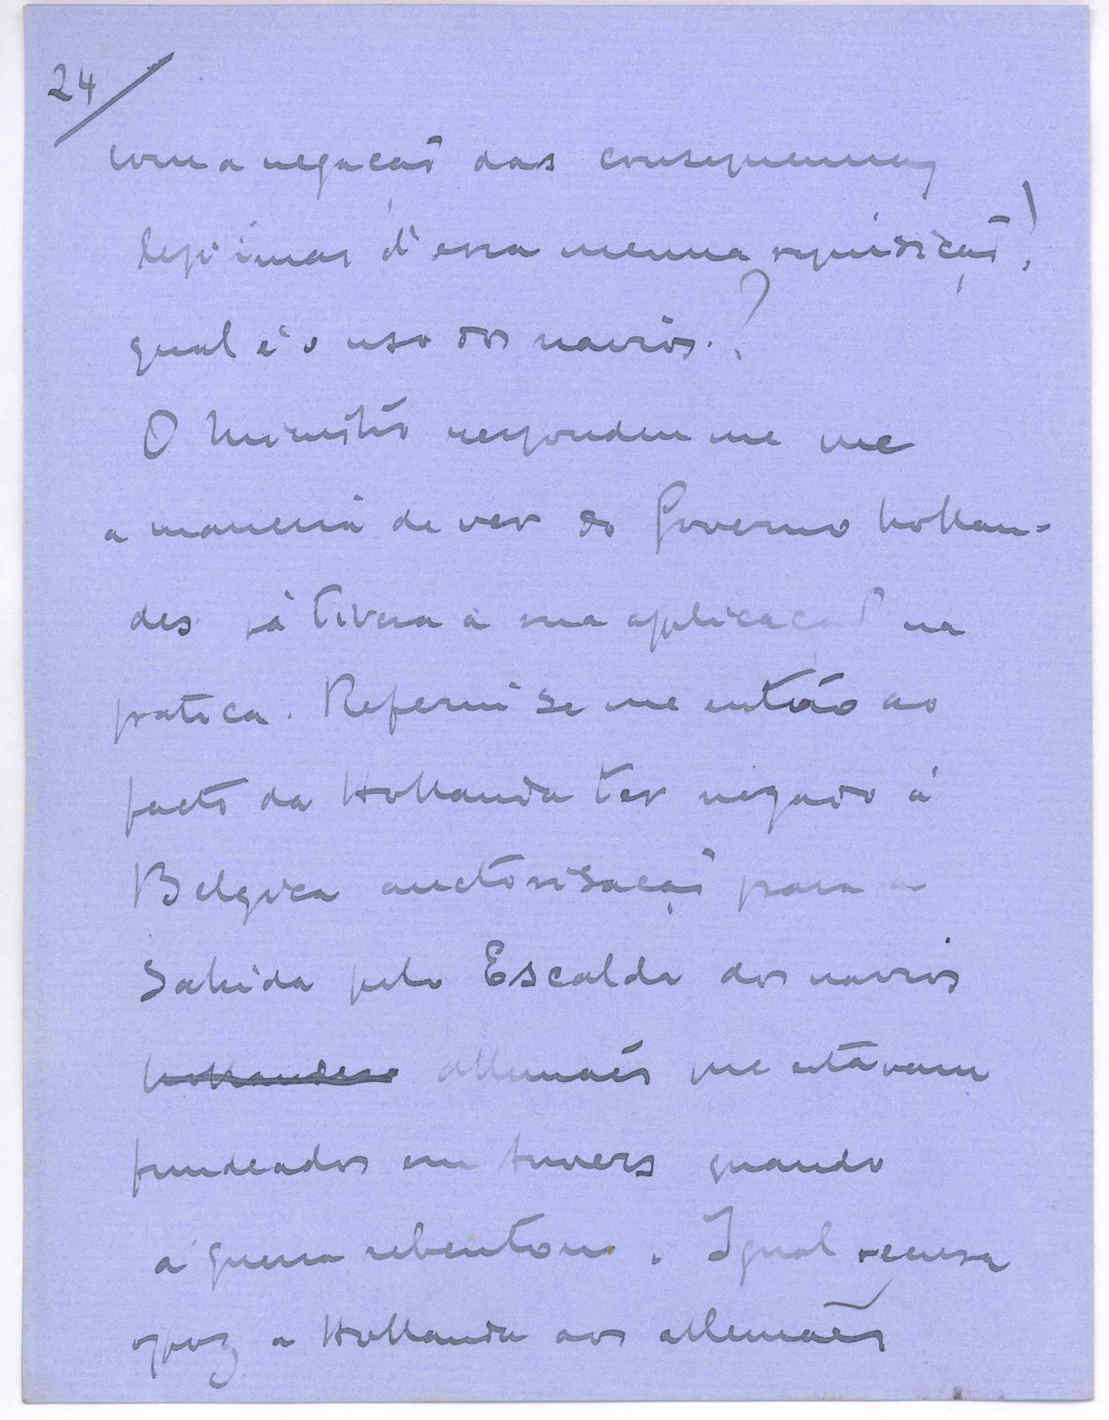 24
com a negação das consequencias
legitimas d'essa mesma requisição!
qual é o uso dos navios?
O Ministro respondeu me que
a maneira de ver do Governo hollan-
des já tivera a sua applicação na
pratica. Referiu se me então ao
facto da Hollanda ter negado á
Belgica auctorisação para a
sahida pelo Escalda dos navios
hollandeses allemães que estavam
fundeados em Anvers quando
a guerra rebentou. Igual recusa
oppoz a Hollanda aos allemães